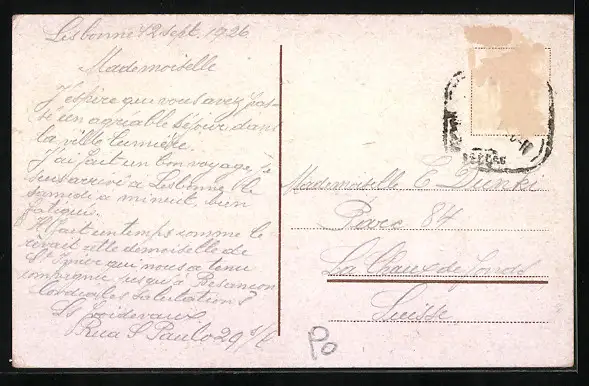 Lisbonne 12 sept. 1926
Mademoiselle
J'espère que vous avez pas-
sé un agréable séjour dans
la ville lumière.
J'ai fait un bon voyage, je
suis arrivé a Lisbonne le
samedi a minuit, bien
fatigué.
Il fait un temps comme le
rêvait cette demoiselle de
St Imier qui nous a tenu
compagnie jusqu'a Besançon
Cordiales salutations
Froidevaux
Rua S Paulo 29
Mademoiselle E
Parc 84
La Chaux de Fonds
Suisse
Po